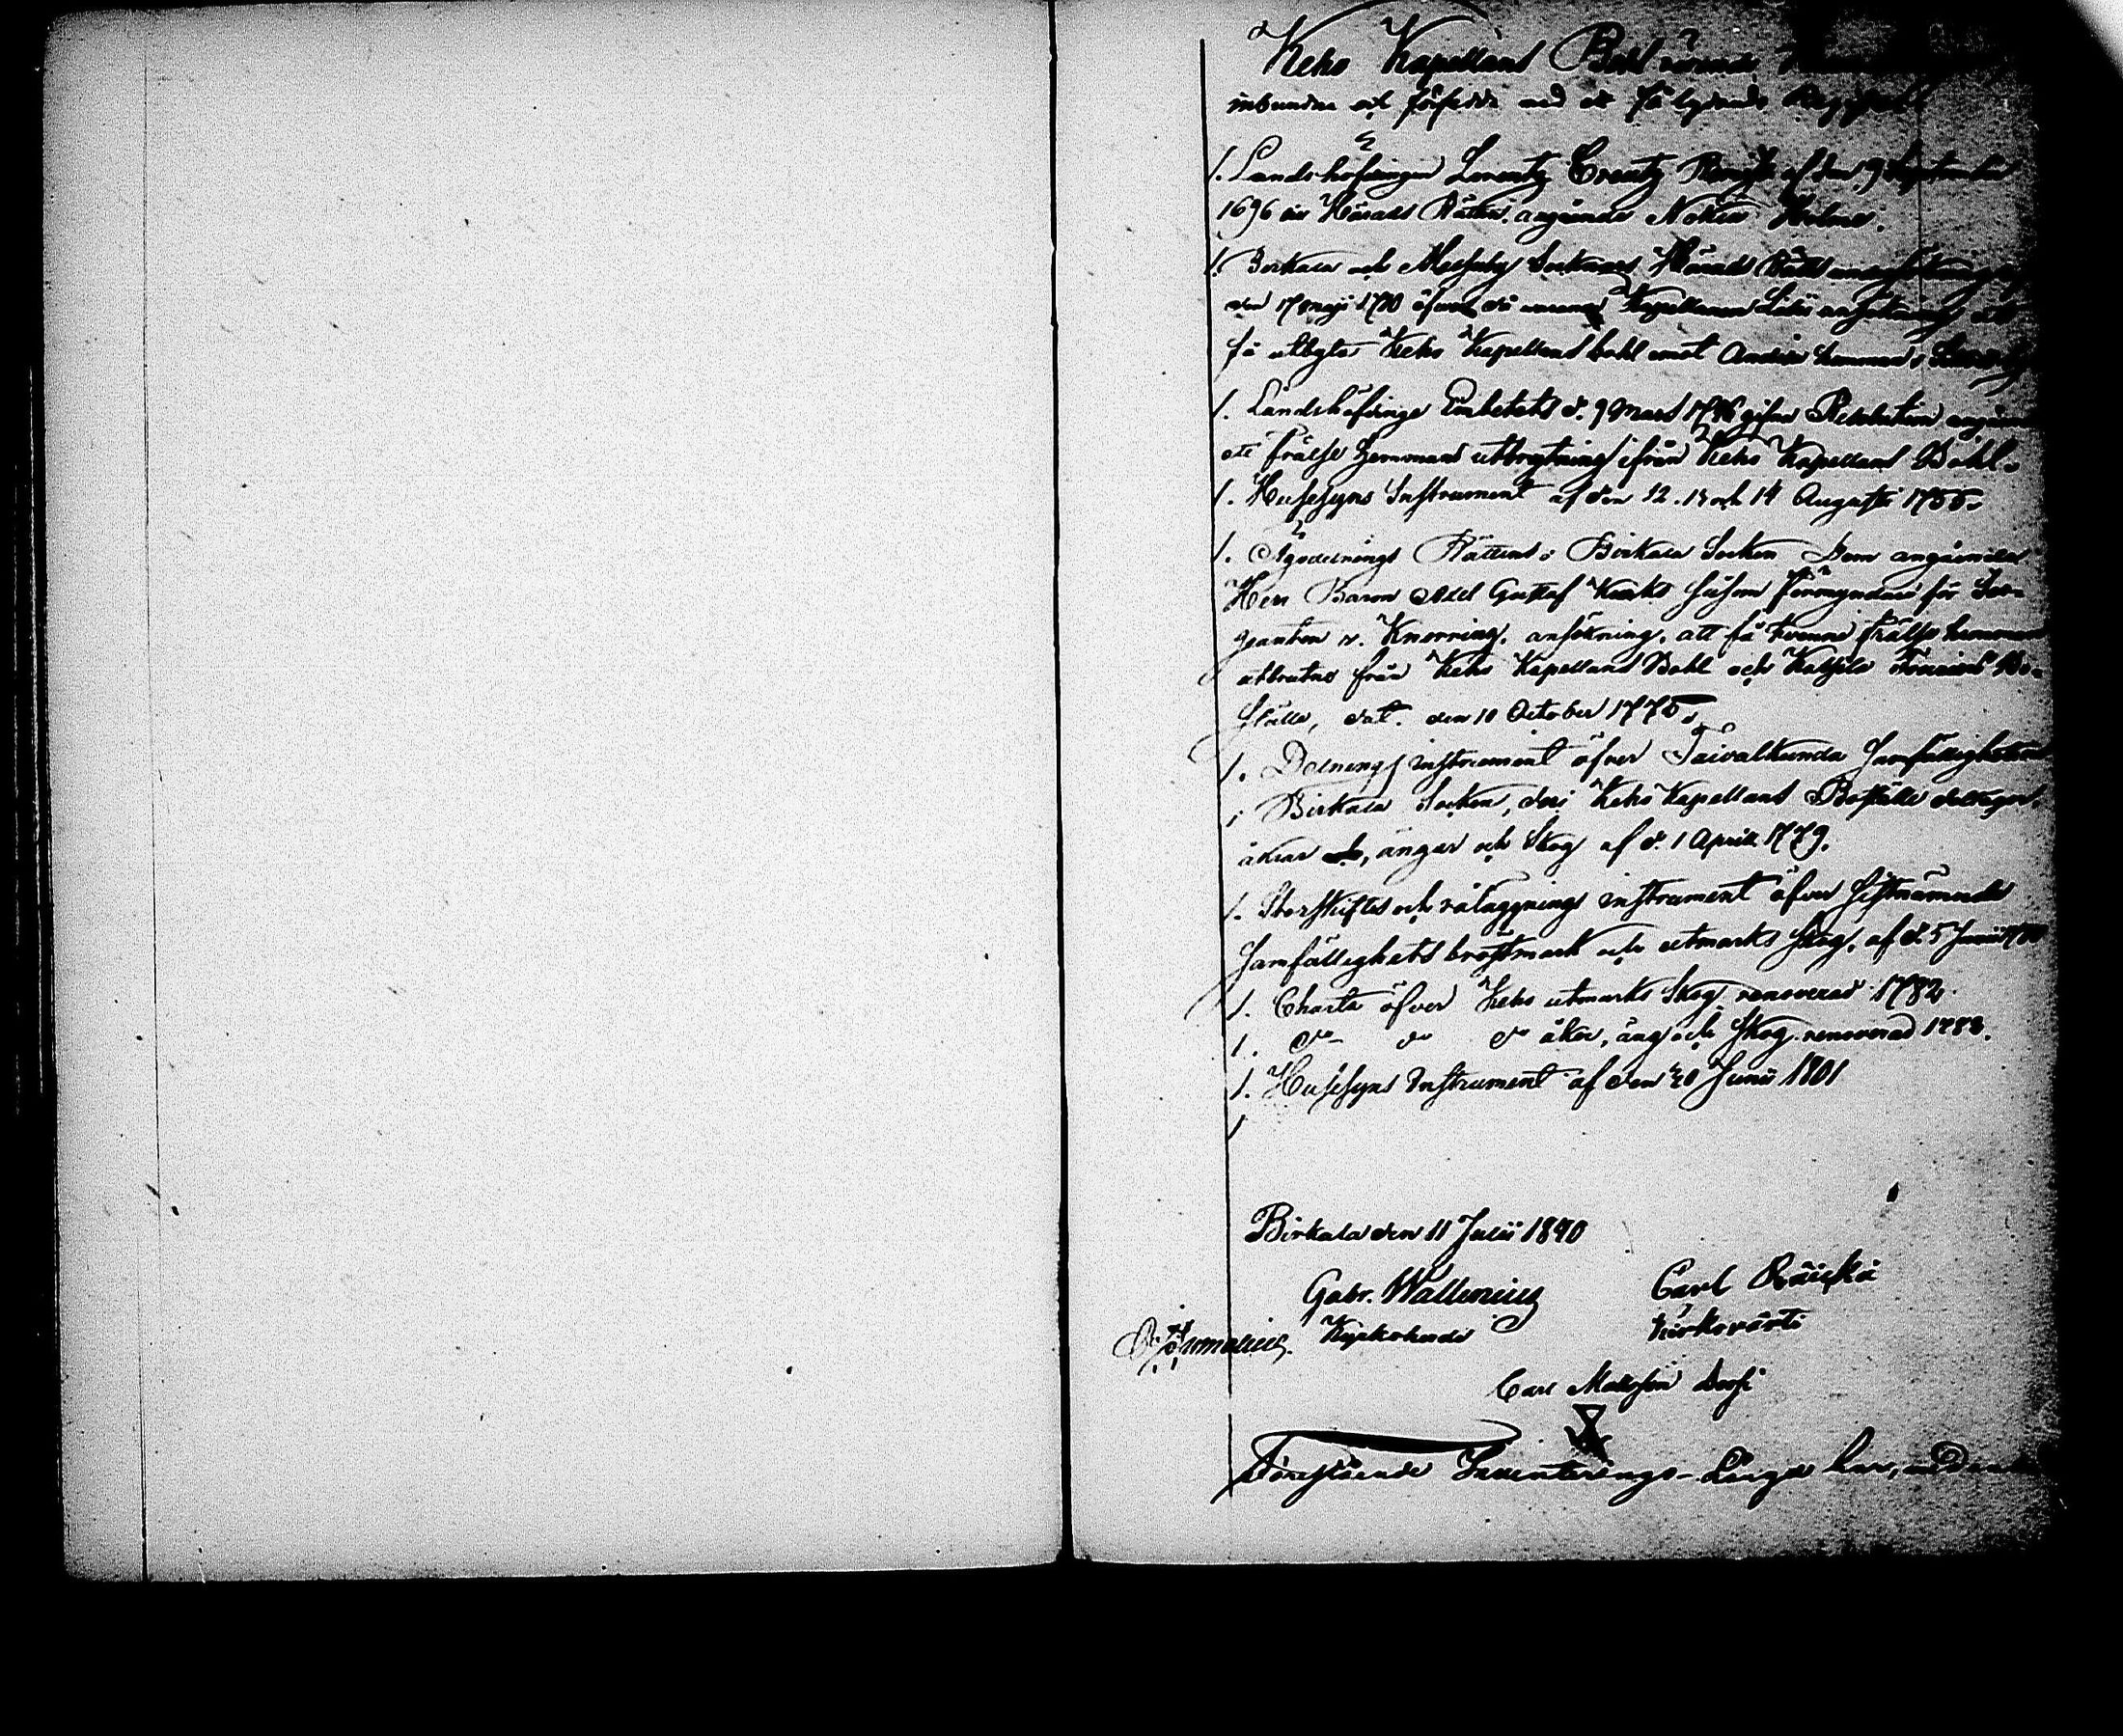 Keho Kapellans Bohl rörande
inbundne och försedde med et få lydande
1. Landshöfdingen Lorentz Creutz af den 9 September
1696 Härads Rätten angående Nokia Holme.
1. Birkala och Messuby Socknars Härads Rätts
den 17 Maji 1720 öfver då varande Kapellanen ansökning at
få utbyta Keho Kapellans bohl emot hemman i
1. Landshöfdinge Embetets d. 9 Mars 1746 gifna Resolution angående
ett frälse hemmans utbrytning ifrån Keho Kapellans Bohl.
1. Husesyns Instrument af den 12. 13 och 14 Augusti 1755.
1. Ägodelnings Rättens i Birkala Socken Dom angående
Herr Baron Axel Gustaf Kurks såsom Förmyndare för Ser-
geanten v. Knorring, ansökning, att få tvenne frälse hemman
utbrutne från Keho Kapellans Bohl och Kalkila Bo-
ställe, dat. den 10 October 1775.
1. Delnings instrument öfver Taivalkunda Samfällighetens
i Birkala Socken, deri Keho Kapellans Boställe deltager,
åkrar, ängar och Skog af d. 1 April 1779.
1. Storskiftes och råläggnings instrument öfver sistnämnde
Samfällighets bröstmark och utmarks skog, af d. 5 Junii
1. Charta öfver Keho utmarks Skog renoverad 1782.
1. do do do åker, äng och Skog renoverad 1783.
1. Husesyns Instrument af den 20 Junii 1801
1
Birkala den 11 Julii 1840
Gabr. Wallenius Carl
Kyrkoherde Kirkovärti
Carl Mattsson
Förestående Inventerings-Längd har,